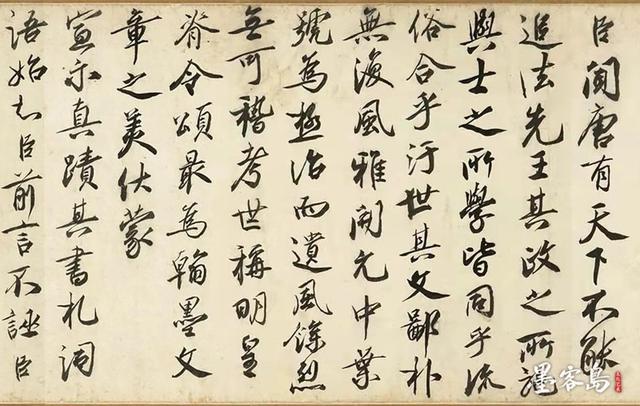 臣聞唐有天下不能
追法先王其政之所施
與士之所學皆同乎流
俗合乎汙世其文鄙朴
無復風雅開元中葉
號為極治而遺風餘烈
无可稽考世稱明皇
脊令頌最為翰墨文
章之美伏蒙
宣示真蹟其書札詞
語始知臣前言不誣臣
墨客島